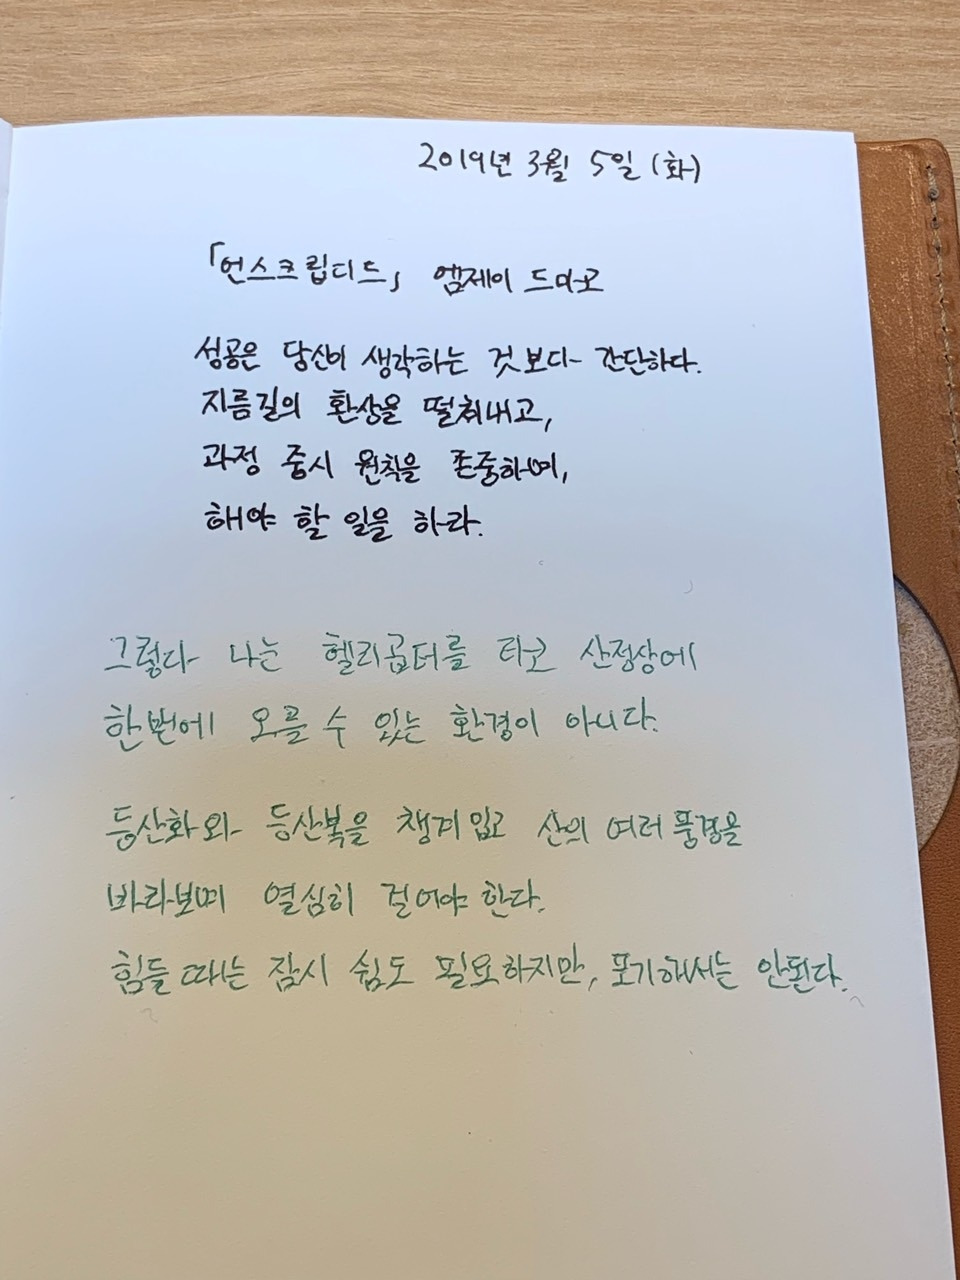 2019년 3월 5일 (화)
「언스크립티드」 엠제이 드마코
성공은 당신이 생각하는 것보다 간단하다.
지름길의 환상을 떨쳐내고,
과정 중시 원칙을 존중하며,
해야 할 일을 하라.
그렇다 나는 헬리곱터를 타고 산정상에
한번에 오를 수 있는 환경이 아니다.
등산화와 등산복을 챙겨입고 산의 여러 풍경을
바라보며 열심히 걸어야 한다.
힘들때는 잠시 쉼도 필요하지만, 포기해서는 안된다.